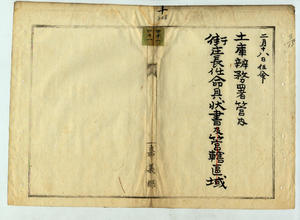 二月十八日任命
土庫辨務署管內
街庄長任命具狀書及管轄區域
嘉義縣